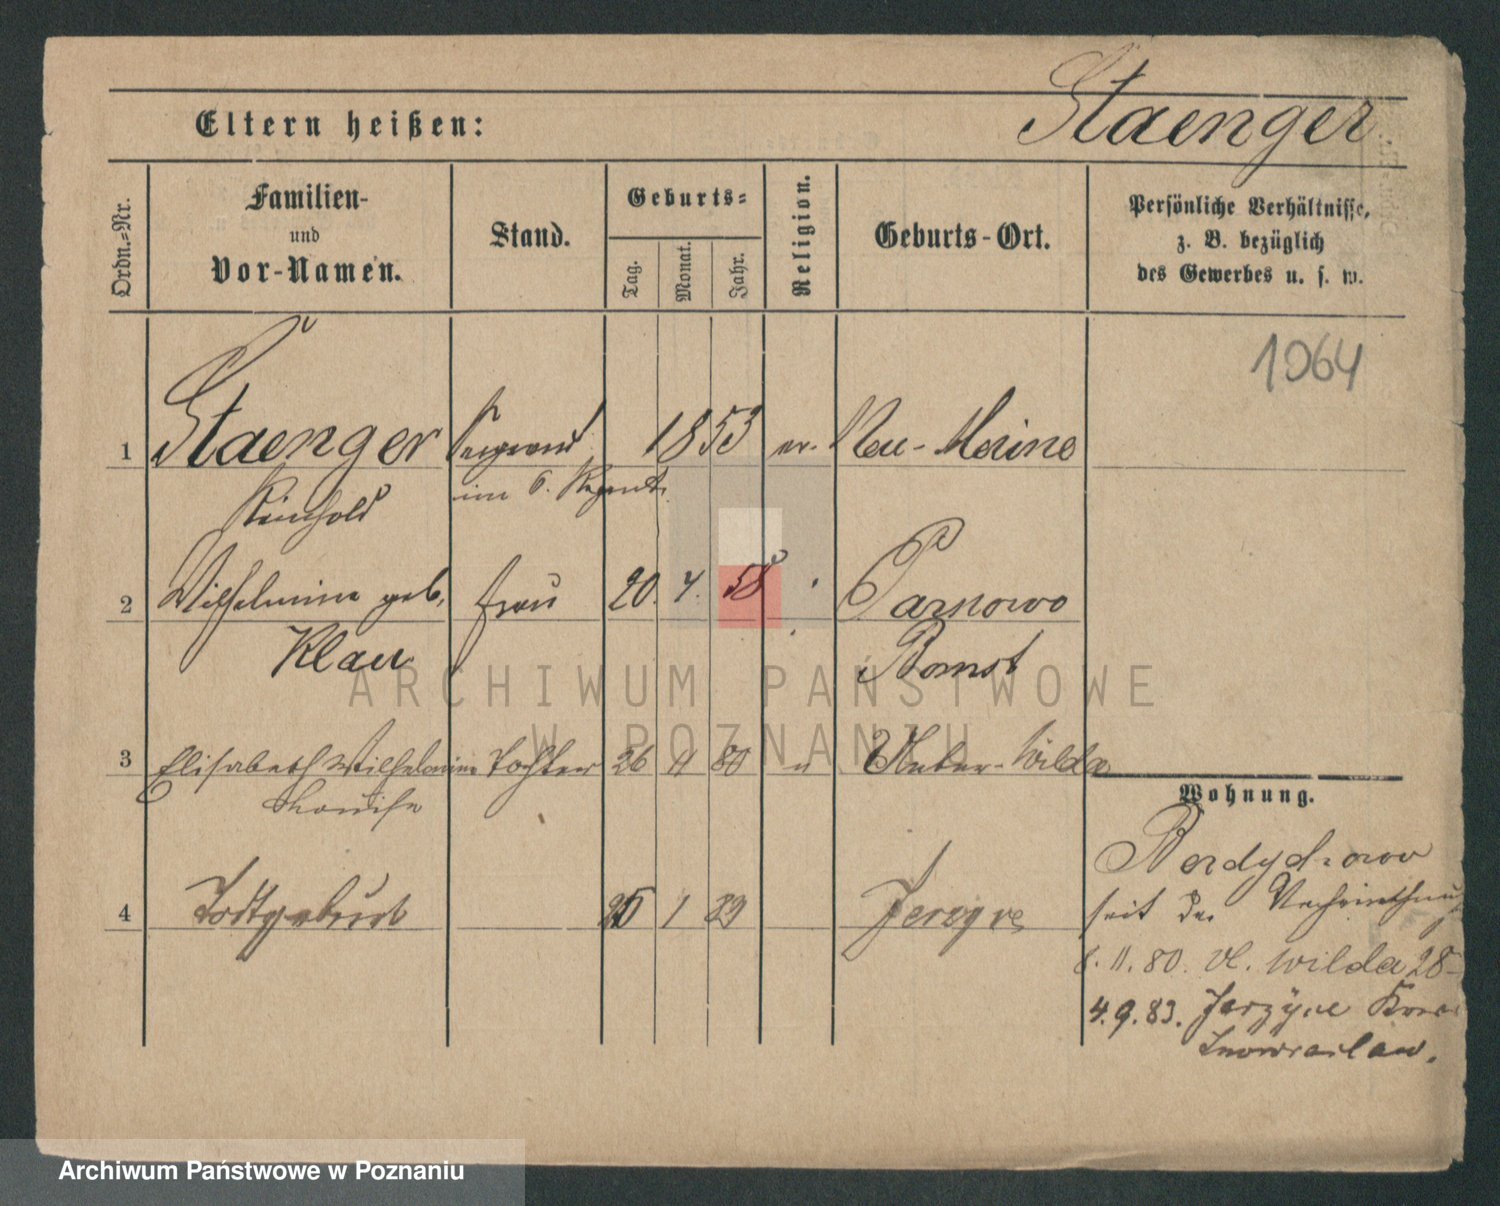 Staenger
Eltern heißen:
Ordn.=Nr.
Familien-
und
Vor-Namen.
Stand.
Geburts=
Tag.
Monat.
Jahr.
Religion.
Geburts-Ort.
Persönliche Verhältnisse,
z. B. bezüglich
des Gewerbes u. s. w.
1064
1 Staenger 1853 ev. Neu-
Reinhold im 6.
2 Wilhelmine geb. Frau 20. 4. 58 Parnowo
Klau Bomst
3 Elisabeth Wilhelmine Tochter 26 11 80 " Unter-Wilda
Louise
Wohnung.
Berdychowo
4 Todtgeburt 1 Jerzyce
seit der
8. 11. 80. Wilda 28
4. 9. 83. Jerzyce
Inowraclaw.
ARCHIWUM PAŃSTWOWE
W POZNANIU
Archiwum Państwowe w Poznaniu